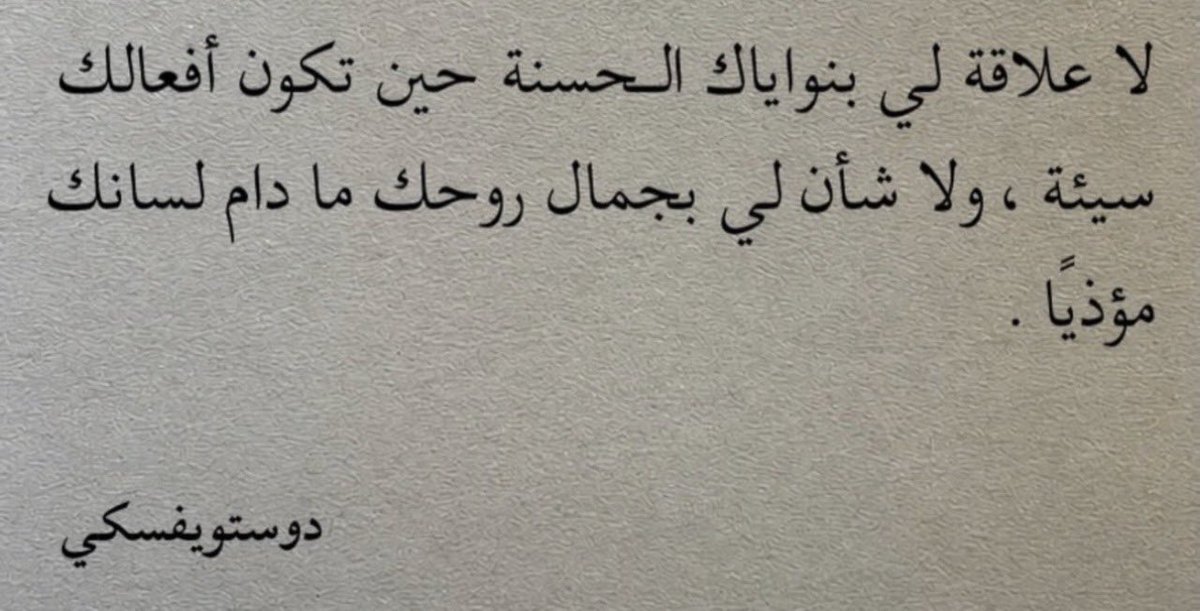 لا علاقة لي بنواياك الـحسنة حين تكون أفعالك
سيئة ، ولا شأن لي بجمال روحك ما دام لسانك
مؤذيًا .
دوستويفسكي